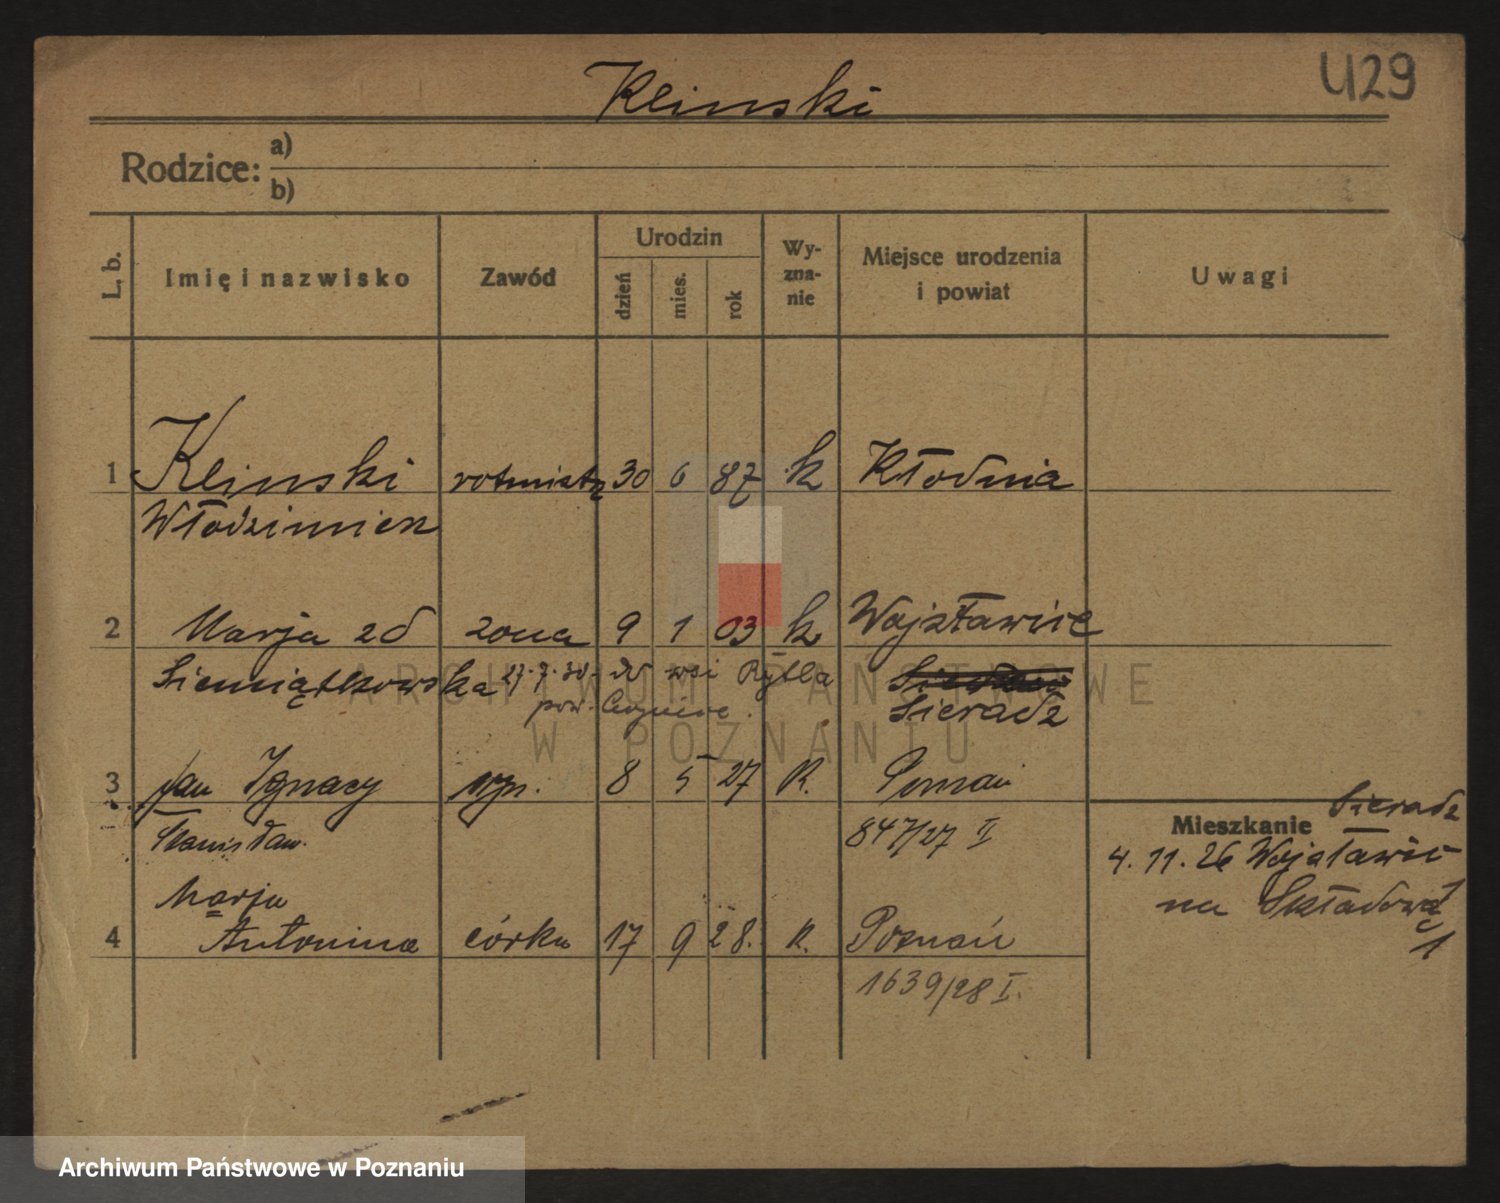 429
Klinski
Rodzice:
a)
b)
L. b.
Imię i nazwisko
Zawód
Urodzin
dzień
mies.
rok
Wy-
zna-
nie
Miejsce urodzenia
i powiat
Uwagi
1 Klinski rotmistrz 30 6 87 k Kłodnia
Włodzimierz
2 Marja zd żona 9 1 03 k Wojsławice
Siemiątkowska 27.7.30. do wsi Rytla
pow.
Sieradz
3 Jan Ignacy syn. 8 5 27 R. Poznań
Stanisław. 847/27 II
Marja
4 Antonina córka 17 9 28. R. Poznań
1639/28 I.
Mieszkanie
Sieradz
4.11.26 Wojsławic
na Składową
1
ARCHIWUM PAŃSTWOWE
W POZNANIU
Archiwum Państwowe w Poznaniu